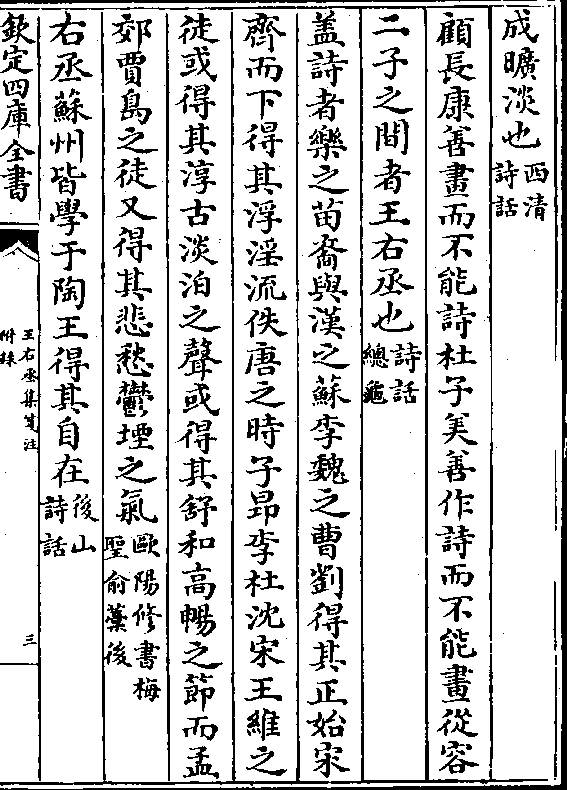 成曠淡也西清詩話
顧長康善畫而不能詩杜子美善作詩而不能畫從容
二子之間者王右丞也詩話總龜
蓋詩者樂之苗裔與漢之蘇李魏之曹劉得其正始宋
齊而下得其浮淫流佚唐之時子昂李杜沈宋王維之
徒或得其淳古淡泊之聲或得其舒和高暢之節而孟
郊賈島之徒又得其悲愁鬱堙之氣歐陽修書梅聖俞藁後
右丞蘇州皆學于陶王得其自在後山詩話
欽定四庫全書
王右丞集箋注
附錄
三